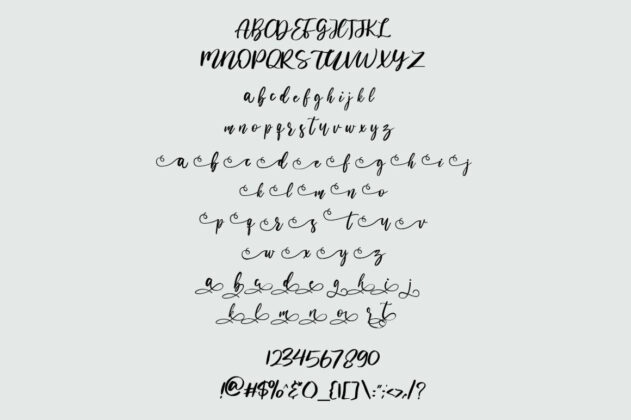 ABCDEFGHIJKL
MNOPQRSTUVWXYZ
abcdefghijkl
mnopqrstuvwxyz
a b c d e f g h i j
k l m n o
p q r s t u v
w x y z
a b c d e g h i j
k l m n o r t
1234567890
!@#$%^&*()_{}[]\:";<>,/?